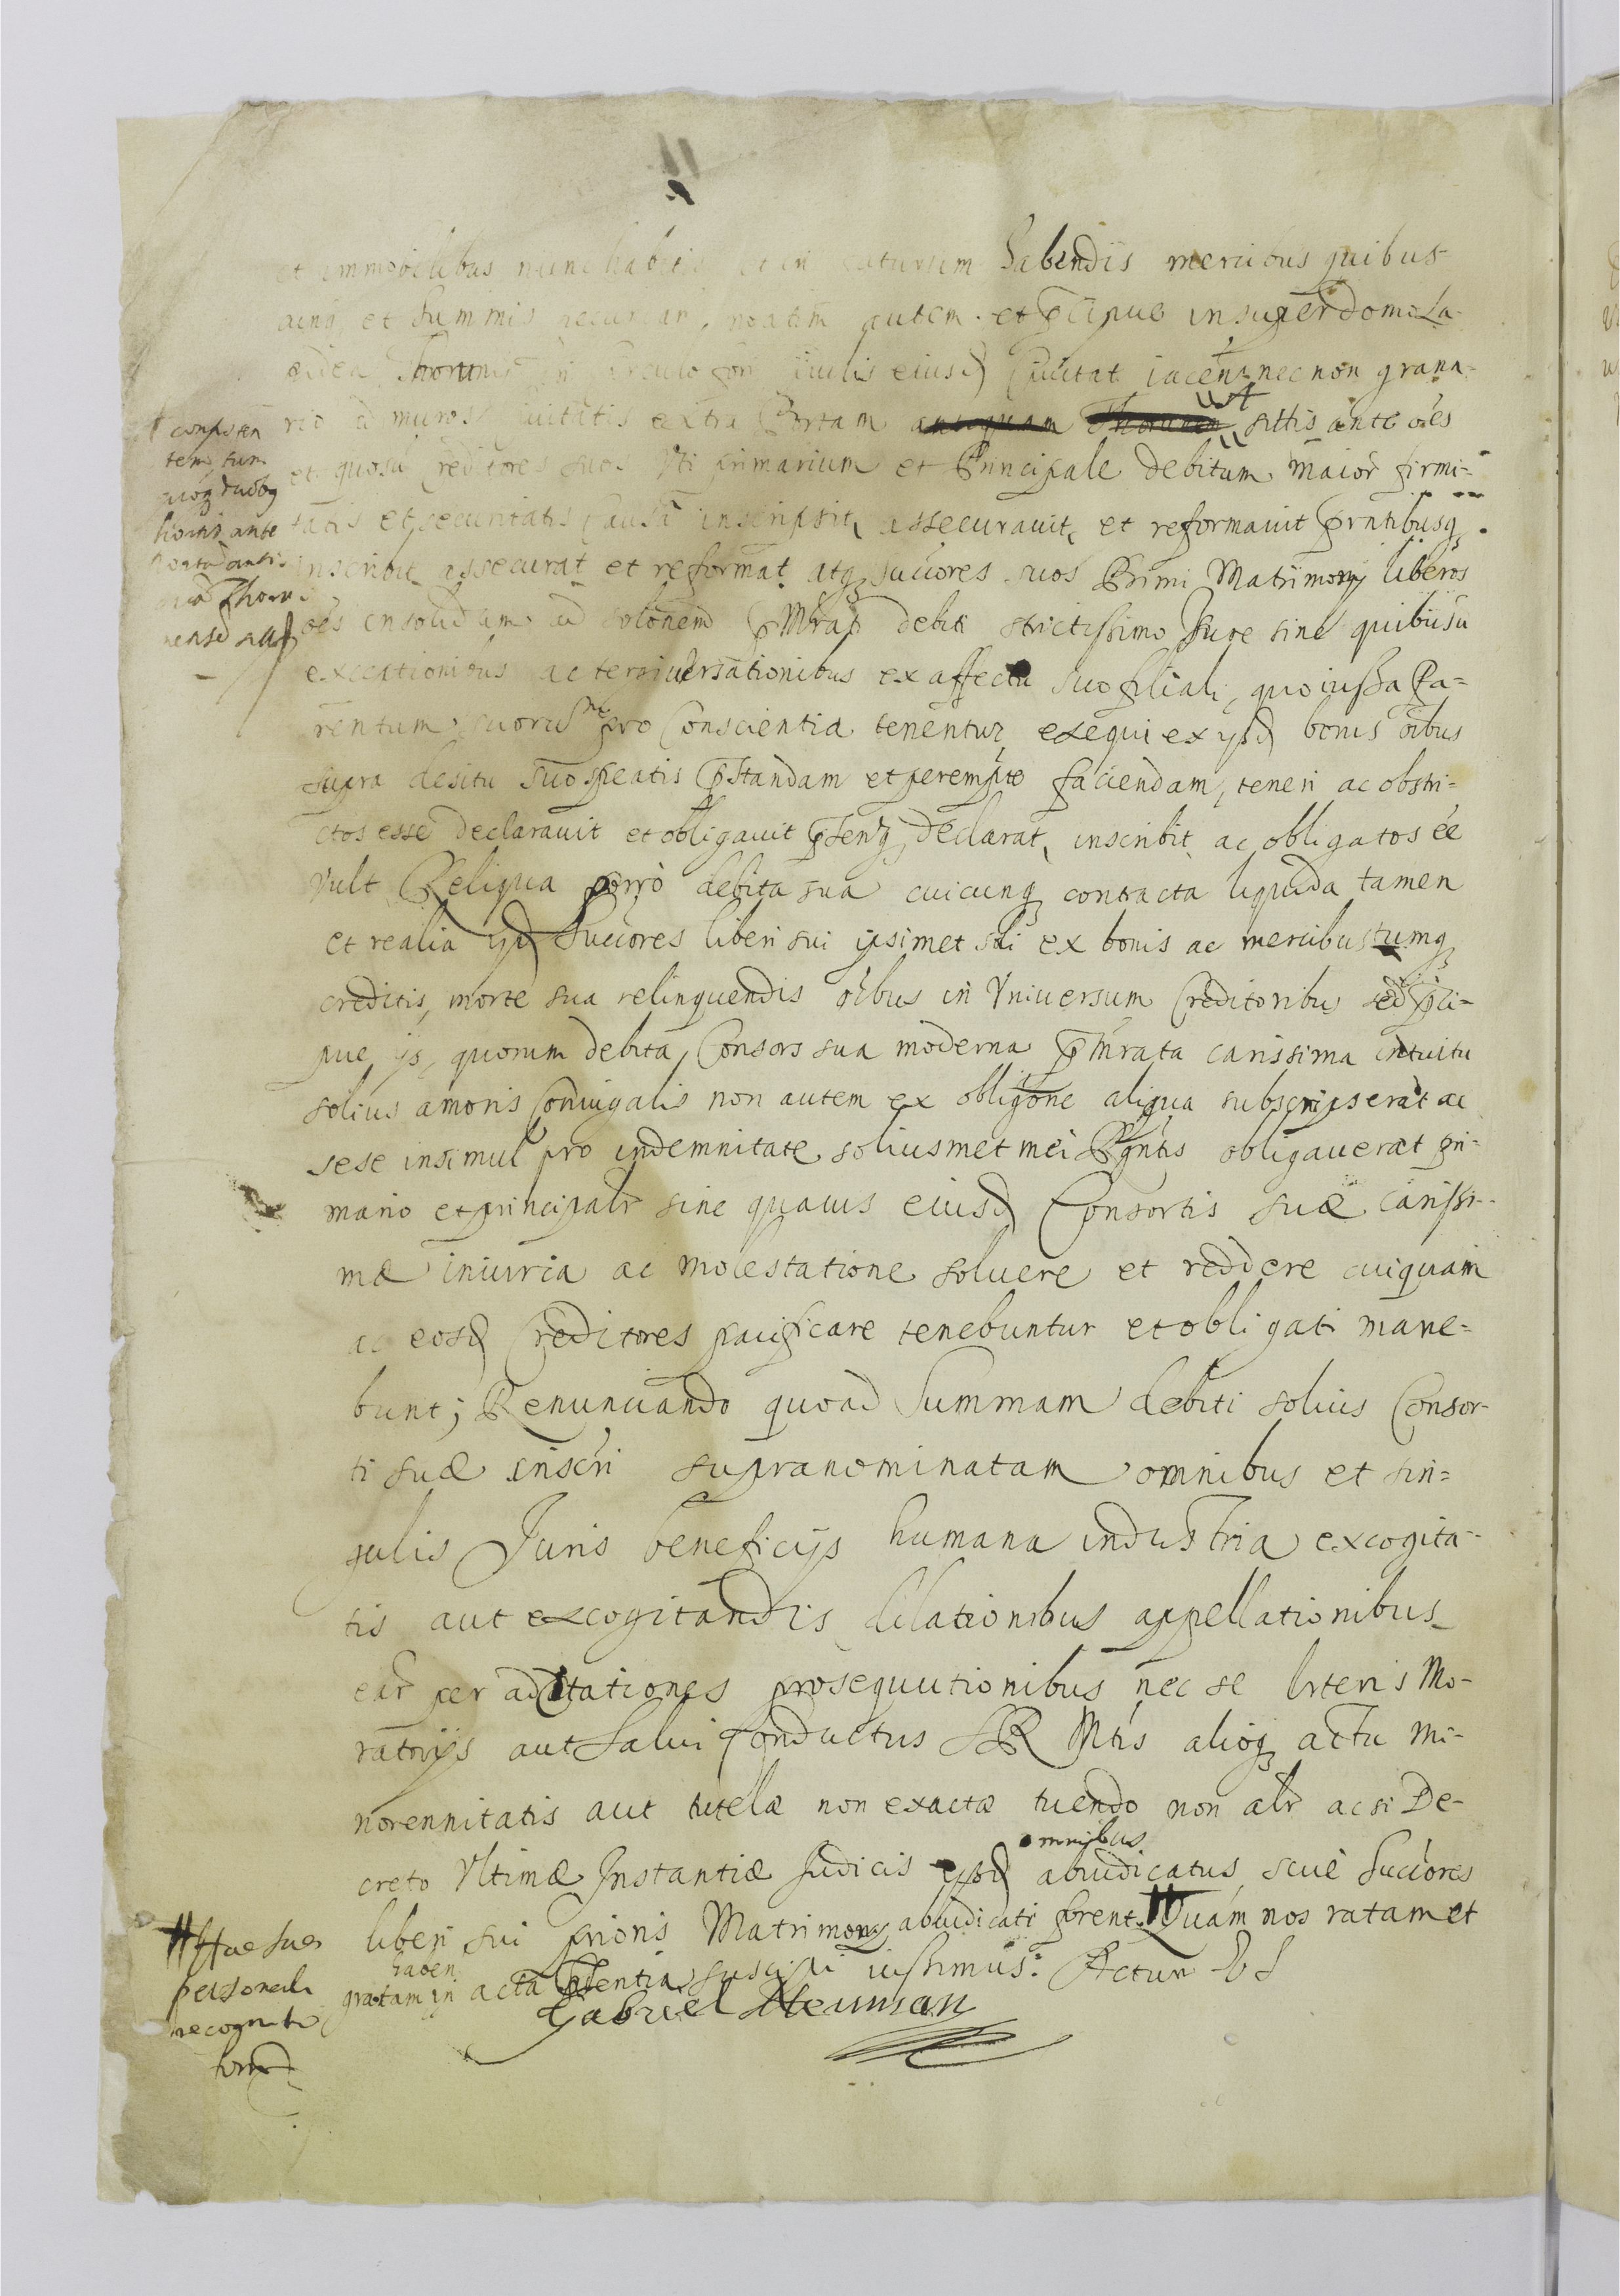 et immobilibus nunc habitis et in futurum habendis mercibus quibus
et summis autem et insuper domo La-
Thorunii in circulo civilis eiusd Civitat iacent nec non grana-
rio ad muros Civitatis extra Portam antiquam sittis ante oēs
et quosū Creditores suos Vti primarium et Principale debitum maior firmi-
tatis et securitatis causā inscripsit, assecurauit, et reformauit prntibusq
inscribit assecurat et reformat atq succōres suos Primi Matrimonij liberos
oēs insolidum ad solonem debiti strictissimo Jure sine quibusū
exceptionibus ac tergiversationibus ex affectu suo filiali, quo iussa Pa-
rentum suorū pro Conscientia tenentur exequi ex ijsd bonis oībus
supra de situ suo spcatis pstandam et perempto faciendam, teneri ac obstri-
ctos esse declarauit et obligauit psenq declarat, inscribit ac obligatos ēē
Vult Reliqua porrò debita sua cuicunq contracta liquida tamen
et realia ijd Succōres liberi sui ipsimet soli ex bonis ac mercibus tumq
creditis, morte sua relinquendis oībus in Vniversum Creditoribus sed pci-
pue ijs, quorum debita, Consors sua moderna pmrata carissima intuitu
solius amoris Coniugalis non autem ex obligone aliqua subscripserat ac
sese insimul pro indemnitate soliusmet mei Pgntis obligauerat pri-
mario et principalr sine quauis eiusd Consortis suæ carissi-
mæ iniuria ac molestatione soluere et reddere cuiquam
ac eosd Creditores pacificare tenebuntur et obligati mane-
bunt; Renunciando quoad Summam debiti solius Consor-
ti suæ inscri supranominatam omnibus et sin-
gulis Juris beneficijs humana industria excogita-
tis aut excogitandis dilationibus appellationibus
ear per adcitationes prosequutionibus nec se literis Mo-
ratorijs aut Salvi Conductus SR Mtis alioq actu mi-
norennitatis aut tutelæ non exactæ tuendo non alr ac si De-
omnibus
creto Vltimæ Instantiæ Judicis abiudicatus, seuè Succōres
liberi sui prioris Matrimonij abiudicati forent. Quam nos ratam et
haben
gratam in acta pntia suscipi iussimus. Actum
Gabriel Neuman
antiquam Thoru
personali
recognito